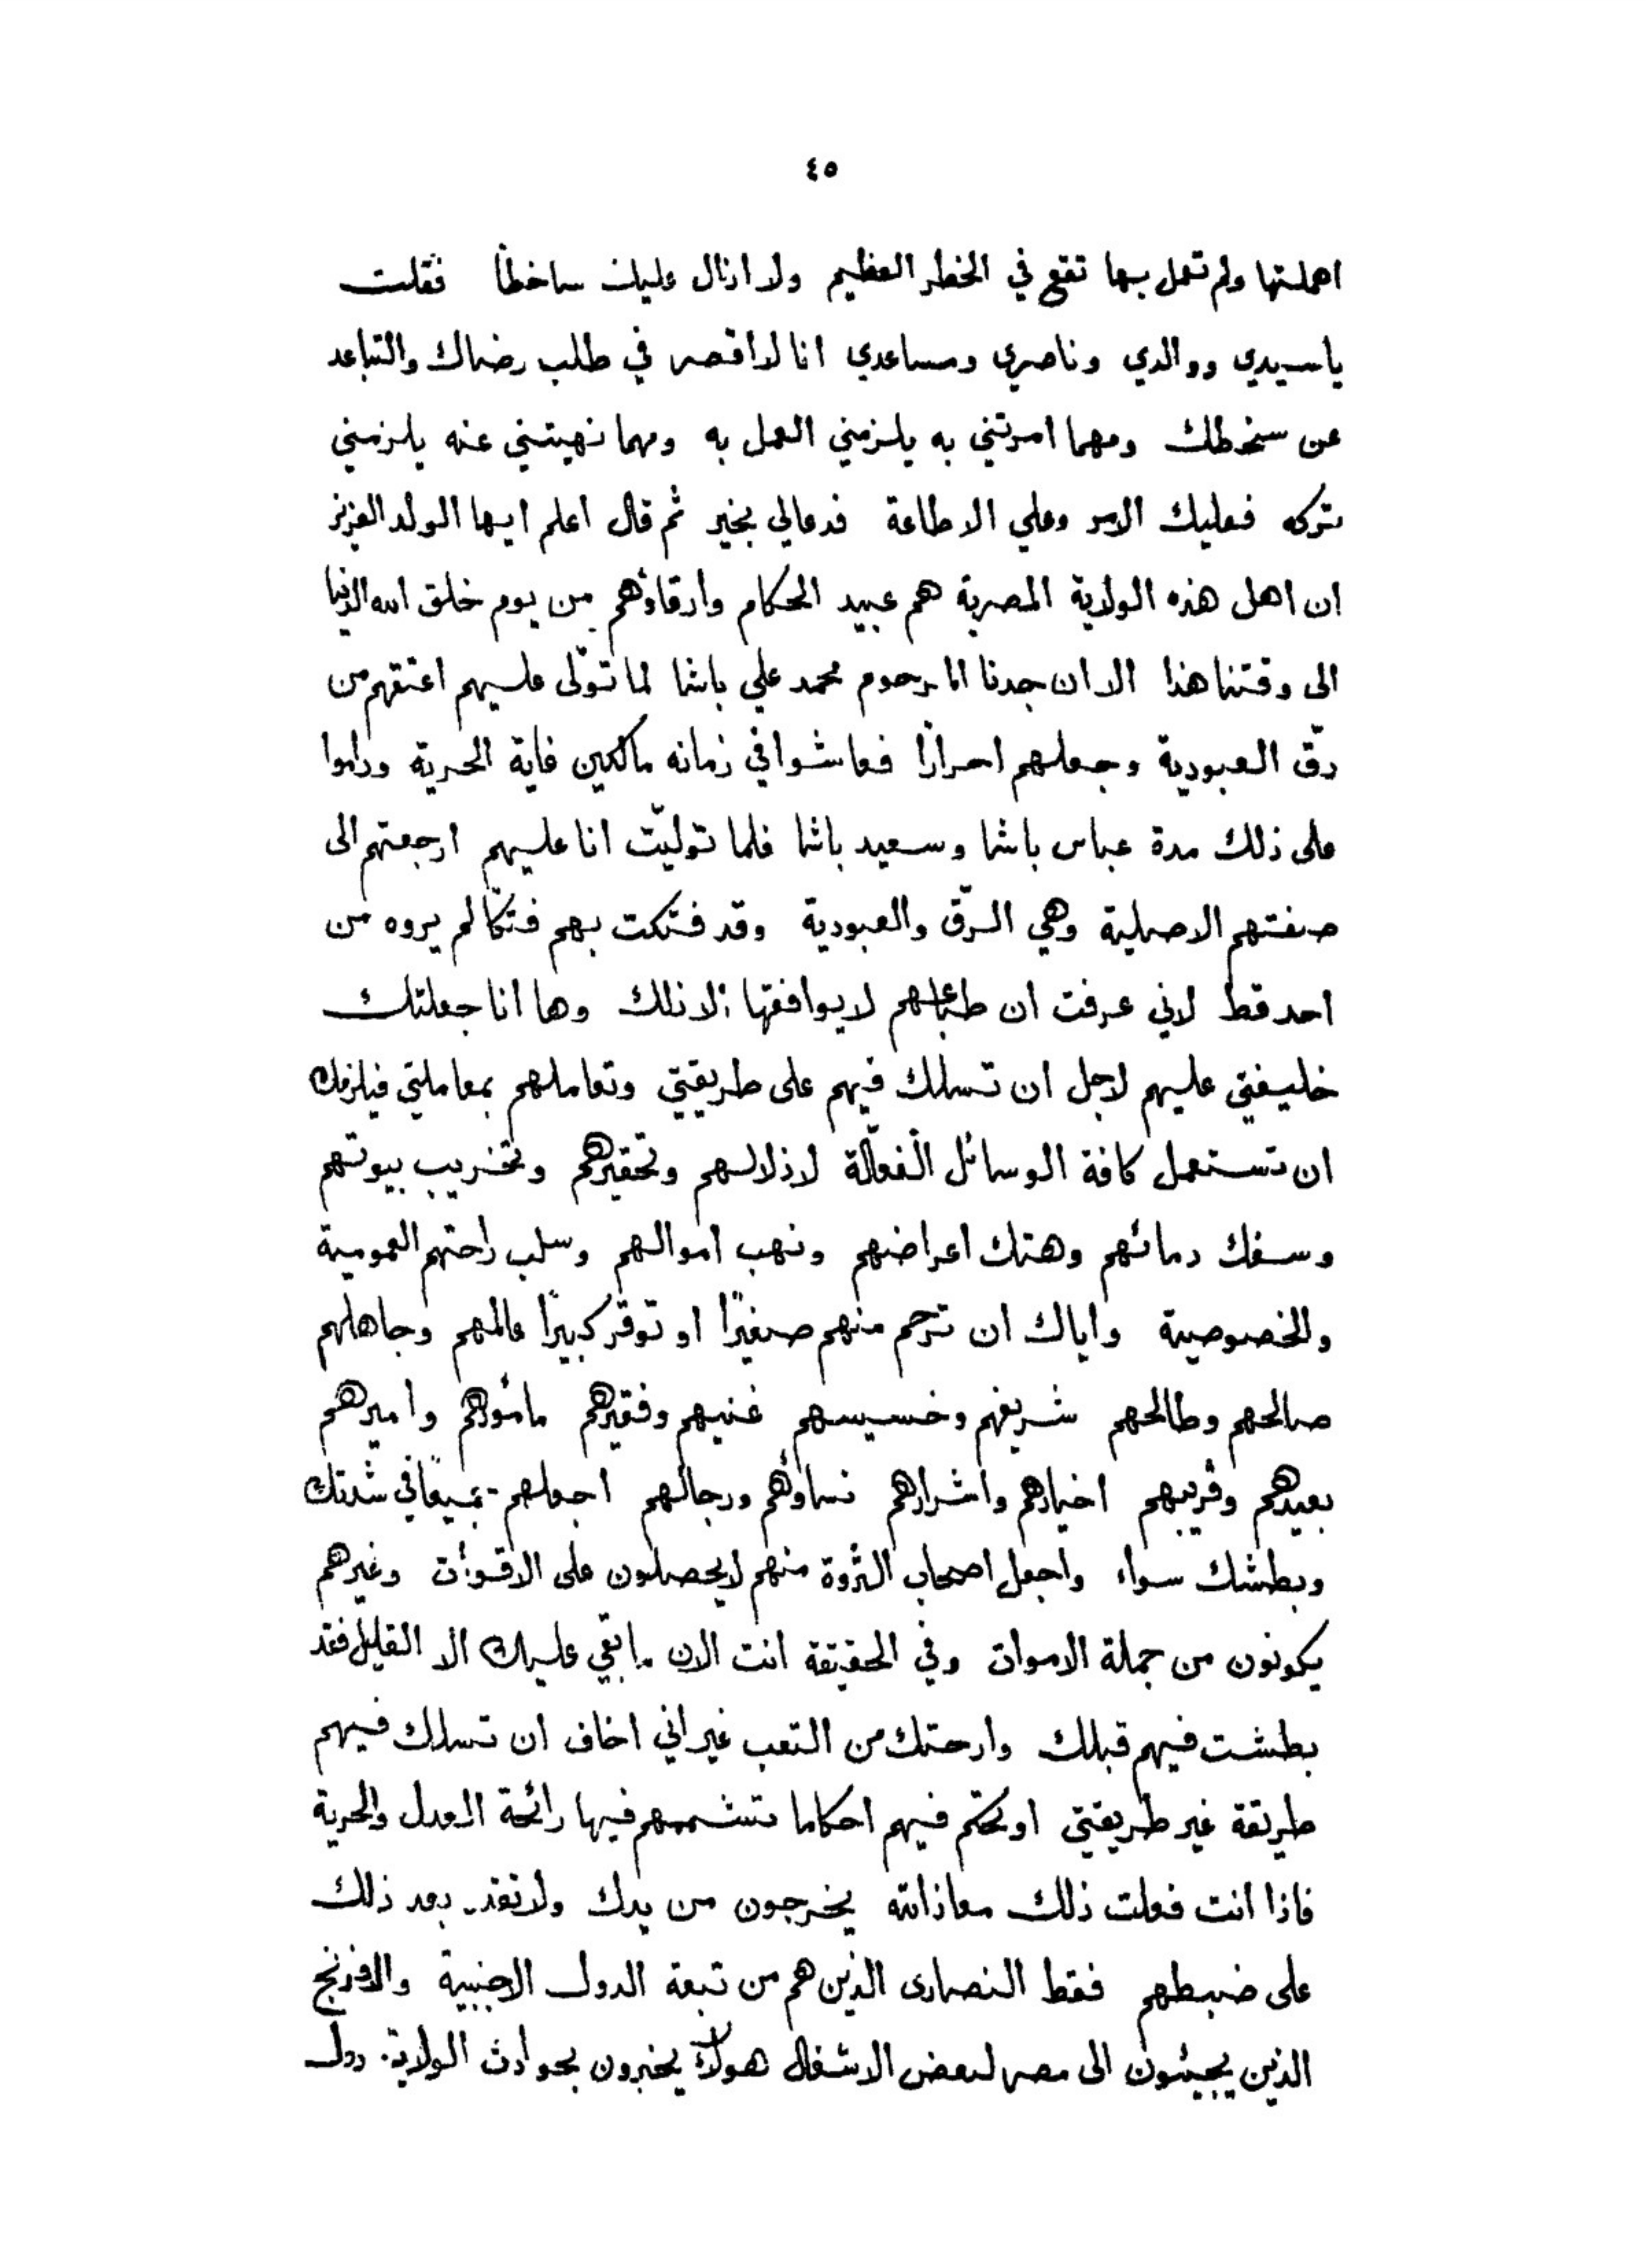 ٤٥
اهملتها ولم تعمل بها تقع في الخطر العظيم ولا ازال عليك ساخطاً فقلت
ياسيدي ووالدي وناصري ومساعدي انا لا اقصر في طلب رضاك والتباعد
عن سخطك ومهما امرتني به يلزمني العمل به ومهما نهيتني عنه يلزمني
تركه فعليك الامر وعلي الاطاعة فدعالي بخير ثم قال اعلم ايها الولد العزيز
ان اهل هذه الولاية المصرية هم عبيد الحكام وارقاؤهم من يوم خلق الله الدنيا
الى وقتنا هذا الا ان جدنا المرحوم محمد علي باشا لما تولّى عليهم اعتقهم من
رقّ العبودية وجعلهم احرارًا فعاشوا في زمانه مالكين غاية الحرية وداموا
على ذلك مدة عباس باشا وسعيد باشا فلما تولّيت انا عليهم ارجعتهم الى
صفتهم الاصلية وهي الرّق والعبودية وقد فتكت بهم فتكًا لم يروه من
احد قط لاني عرفت ان طباعهم لا يوافقها الا ذلك وها انا جعلتك
خليفتي عليهم لاجل ان تسلك فيهم على طريقتي وتعاملهم بمعاملتي فيلزمك
ان تستعمل كافة الوسائل الفعّالة لاذلالهم وتحقيرهم وتخريب بيوتهم
وسفك دمائهم وهتك اعراضهم ونهب اموالهم وسلب راحتهم العمومية
والخصوصية واياك ان ترحم منهم صغيرًا او توقر كبيرًا عالمهم وجاهلهم
صالحهم وطالحهم شريفهم وخسيسهم غنيهم وفقيرهم مأمورهم واميرهم
بعيدهم وقريبهم اخيارهم واشرارهم نساؤهم ورجالهم اجعلهم جميعًا في شدتك
وبطشك سواء واجعل اصحاب الثروة منهم لا يحصلون على الاقوات وغيرهم
يكونون من جملة الاموات وفي الحقيقة انت الان ما بقي عليك الا القليل فقد
بطشت فيهم قبلك وارحتك من التعب غير اني اخاف ان تسلك فيهم
طريقة غير طريقتي او تحكم فيهم احكاما تشممهم فيها رائحة العدل والحرية
فاذا انت فعلت ذلك معاذ الله يخرجون من يدك ولا تقدر بعد ذلك
على ضبطهم فقط النصارى الذين هم من تبعة الدول الاجنبية والافرنج
الذين يجيئون الى مصر لبعض الاشغال هولآء يخبرون بحوادث الولاية دول